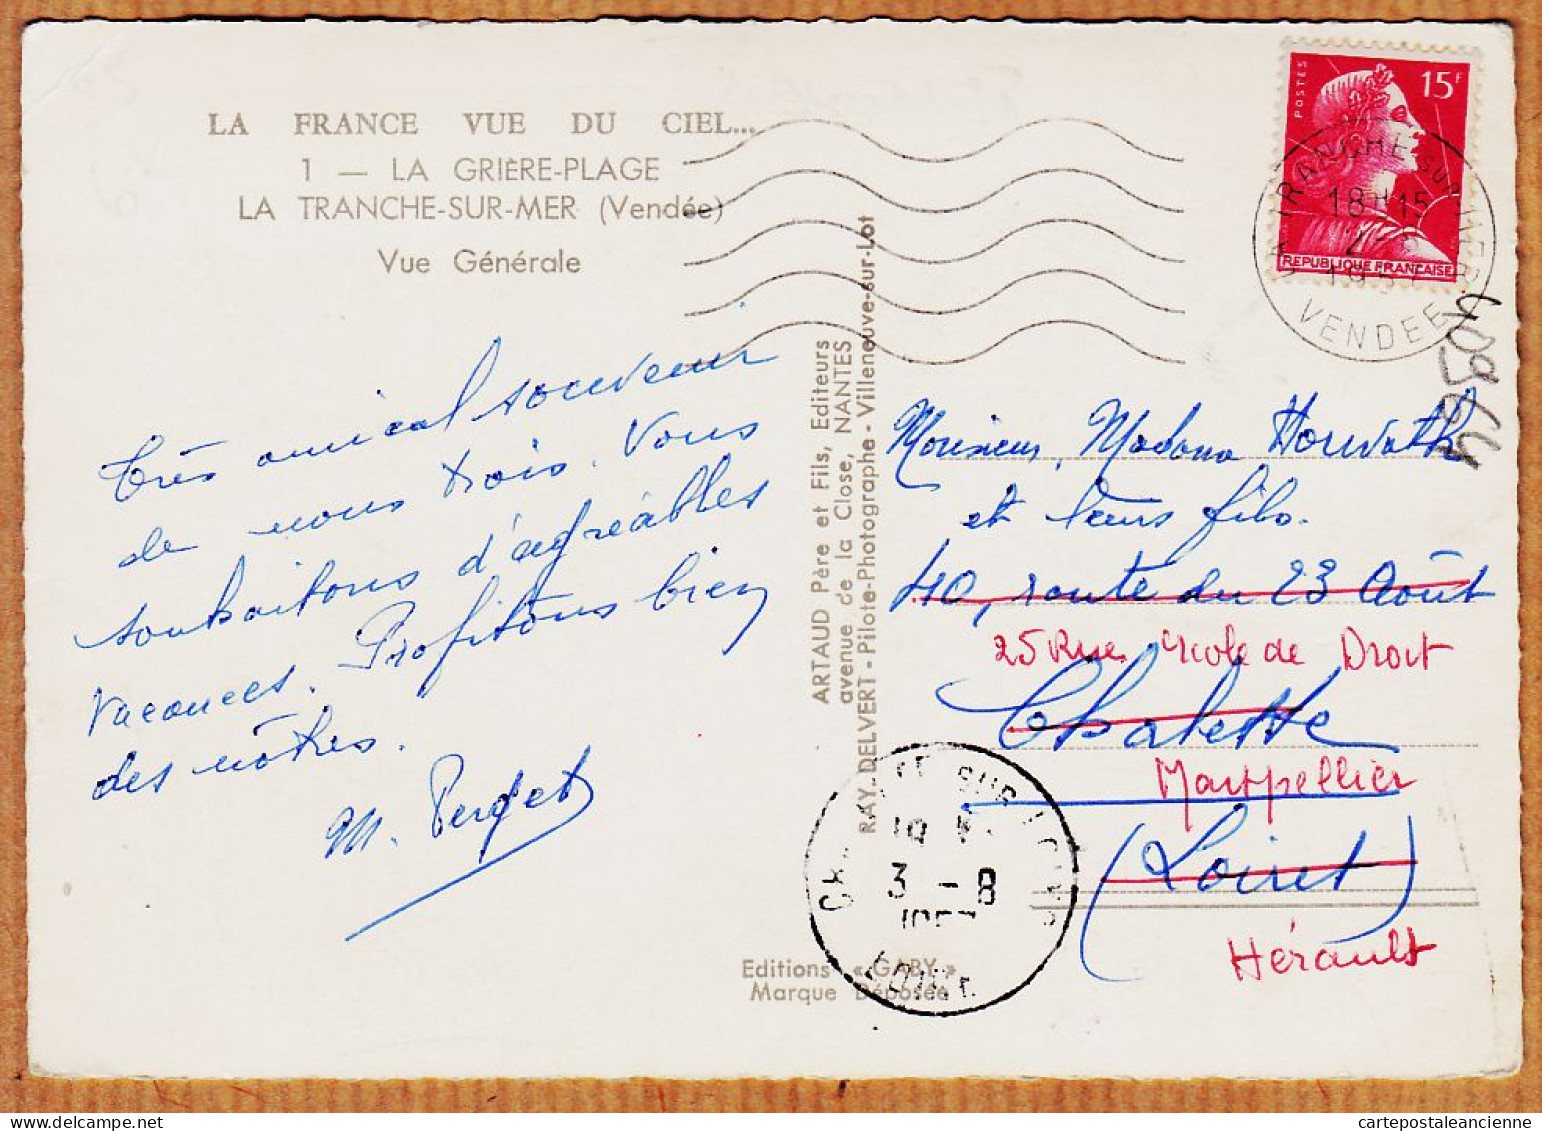 LA FRANCE VUE DU CIEL...
1 — LA GRIÈRE-PLAGE
LA TRANCHE-SUR-MER (Vendée)
Vue Générale
Très amical souvenir
de nous trois. Vous
souhaitons d'agréables
vacances. Profitons bien
des nôtres.
M. Perget
ARTAUD Père et Fils, Editeurs
avenue de la Close, NANTES
RAY-DELVERT - Pilote-Photographe - Villeneuve-sur-Lot
Editions « GABY »
Marque Déposée
POSTES
15F
REPUBLIQUE FRANÇAISE
LA TRANCHE SUR MER
18H15
2-8
1957
VENDEE
Monsieur, Madame Horwath
et leurs fils.
40, route du 23 Août
25 Rue Ecole de Droit
Chalette
Montpellier
(Loiret)
Hérault
3 - 8
1957
LOIRET
cartepostaleancienne